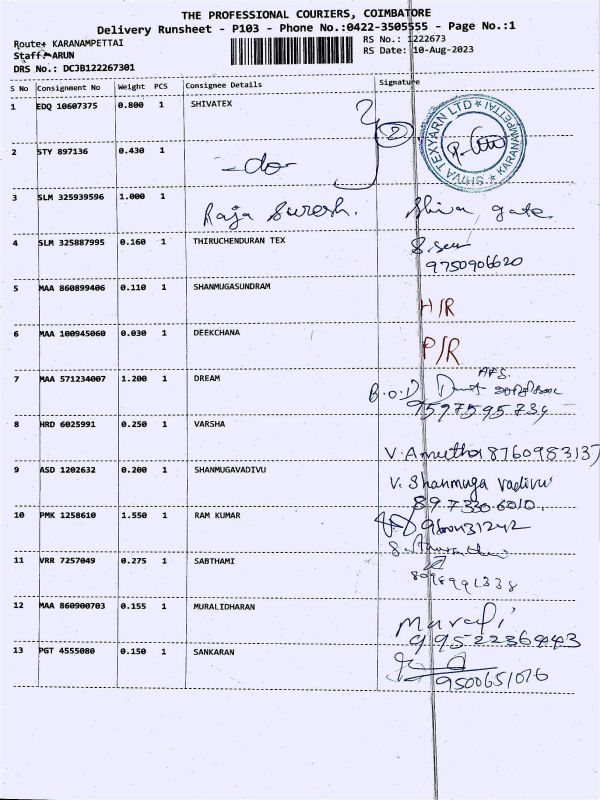 THE PROFESSIONAL COURIERS, COIMBATORE
Delivery Runsheet - P103 - Phone No.:0422-3505555 - Page No.:1
Route: KARANAMPETTAI
RS No.: 1222673
Staff: ARUN
RS Date: 10-Aug-2023
DRS No.: DCJB122267301
S No Consignment No Weight PCS Consignee Details Signature
1 EDQ 10607375 0.800 1 SHIVATEX
2
SHIVA TEXYARN LTD * KARANAMPETTAI *
2 STY 897136 0.430 1
-do-
3 SLM 325939596 1.000 1
Raja Suresh. Shiva gate
4 SLM 325887995 0.160 1 THIRUCHENDURAN TEX
9750906620
5 MAA 860899406 0.110 1 SHANMUGASUNDRAM
H/R
6 MAA 100945060 0.030 1 DEEKCHANA
P/R
7 MAA 571234007 1.200 1 DREAM
B.O.D
9597595734
8 HRD 6025991 0.250 1 VARSHA
V. Amutha 8760983137
9 ASD 1202632 0.200 1 SHANMUGAVADIVU
V. Shanmuga vadivu
8973306010.
10 PMK 1258610 1.550 1 RAM KUMAR
11 VRR 7257049 0.275 1 SABTHAMI
8098991338
12 MAA 860900703 0.155 1 MURALIDHARAN
Murali
13 PGT 4555080 0.150 1 SANKARAN
9500651076